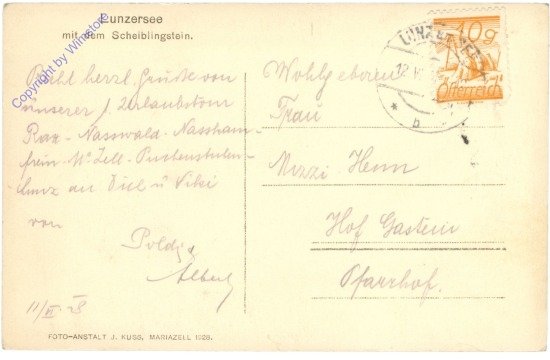 Lunzersee
mit dem Scheiblingstein.
Copyright by Winstore
Recht herzl. Grüsse von
unserer Urlaubstour
Rax - Nasswald - Nassham-
frein Mº Zell - Puchenstuben
Lunz an Dich u Viki
von
Poldy &
Albert
11/VI 28
Wohlgeboren
Frau
Mizzi Henn
Hof Gastein
Pfarrhof.
LUNZ
12
b
10g
Österreich
FOTO-ANSTALT J. KUSS, MARIAZELL 1928.